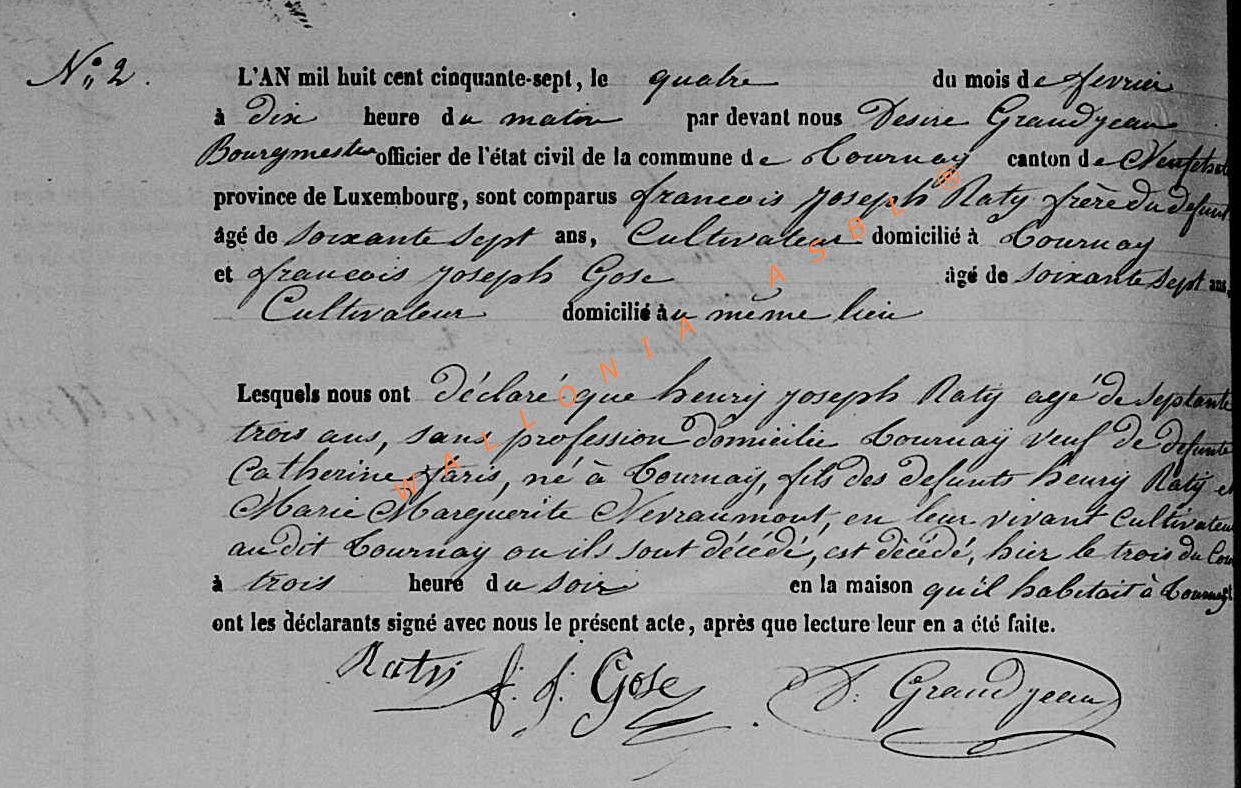 N° 2.
L'AN mil huit cent cinquante-sept, le quatre du mois de fevrier
à dix heure du matin par devant nous Desire Grandjean
Bourgmestre officier de l'état civil de la commune de Tournay canton de Neufchat
province de Luxembourg, sont comparus francois joseph Raty frère du defunt
âgé de soixante sept ans, Cultivateur domicilié à Tournay
et francois joseph Gose âgé de soixante sept ans,
Cultivateur domicilié àu même lieu
Lesquels nous ont déclaré que henry joseph Raty agé de septante
trois ans, sans profession domicilié Tournay veuf de defunte
Catherine faris, né à Tournay, fils des defunts henry Raty et
Marie Marguerite Nevraumont, en leur vivant Cultivateur
au dit Tournay ou ils sont décédé, est décédé, hier le trois du Cou
à trois heure du soir en la maison qu'il habitait à Tournay et
ont les déclarants signé avec nous le présent acte, après que lecture leur en a été faite.
Raty f. j. Gose D. Grandjean
WALLONIA ASBL ®